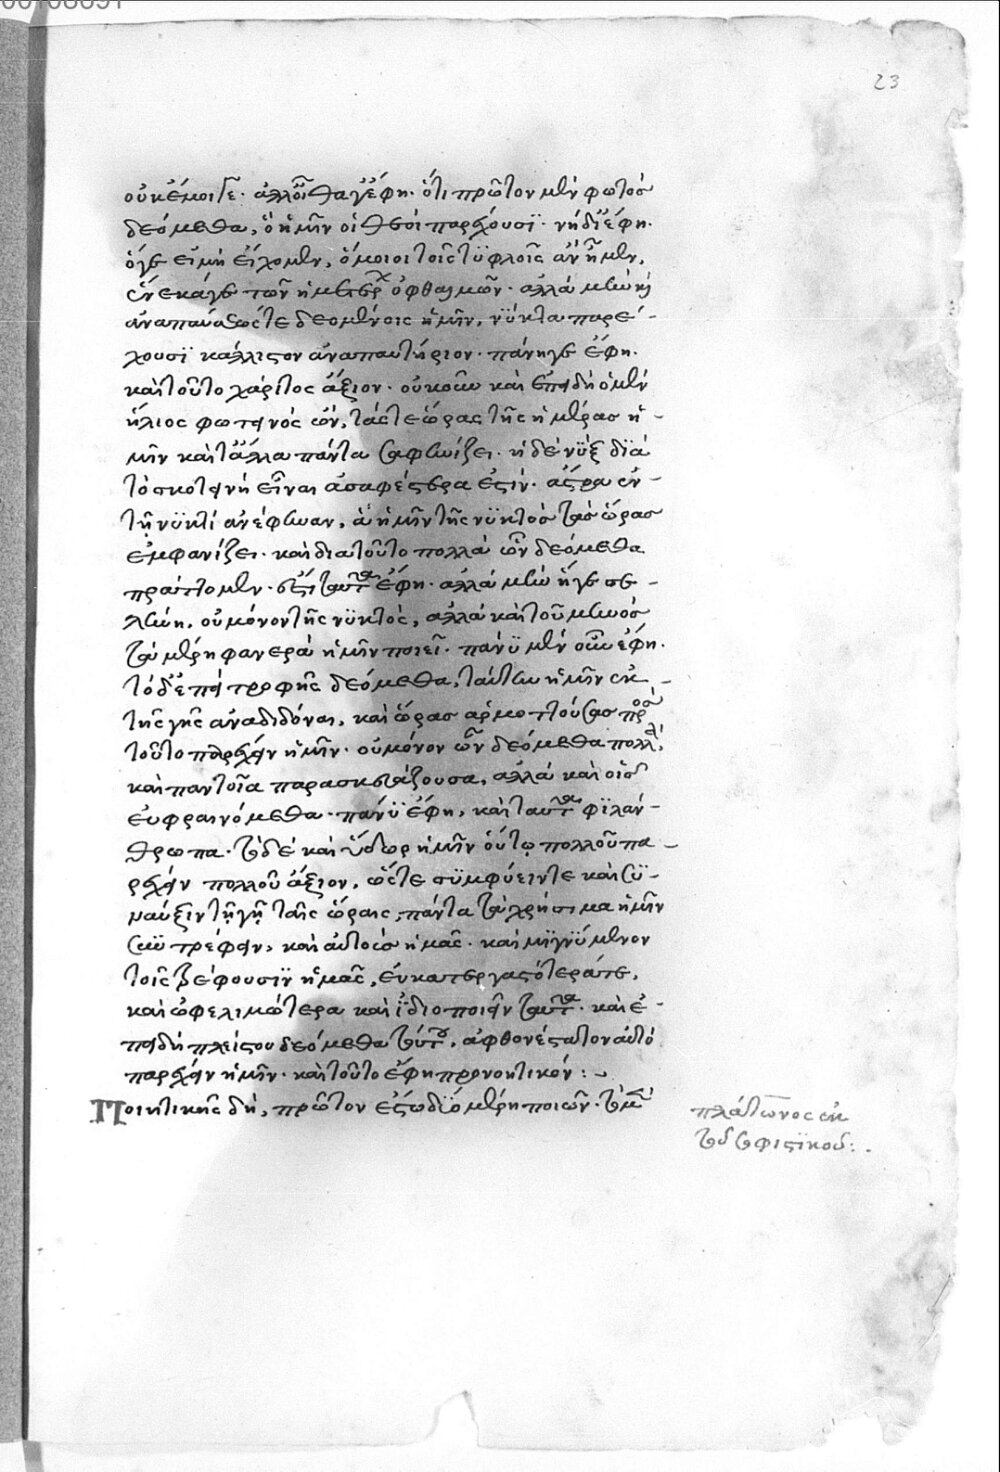 23
οὐκ ἔμοιγε. ἀλλ' οἶσθά γ' ἔφη. ὅτι πρῶτον μὲν φωτὸς
δεόμεθα, ὃ ἡμῖν οἱ θεοὶ παρέχουσι. νὴ δί' ἔφη.
ὅγε εἰ μὴ εἴχομεν, ὅμοιοι τοῖς τυφλοῖς ἂν ἦμεν,
ἕνεκάγε τῶν ἡμετέρων ὀφθαλμῶν. ἀλλὰ μὴν καὶ
ἀναπαύσεώς τε δεομένοις ἡμῖν, νύκτα παρέ-
χουσι κάλλιστον ἀναπαυτήριον. πάνυγε ἔφη.
καὶ τοῦτο χάριτος ἄξιον. οὐκοῦν καὶ ἐπειδὴ ὁ μὲν
ἥλιος φωτεινὸς ὢν, τάς τε ὥρας τῆς ἡμέρας ἡ-
μῖν καὶ τἄλλα πάντα σαφηνίζει. ἡ δὲ νὺξ διὰ
τὸ σκοτεινὴ εἶναι ἀσαφεστέρα ἐστίν. ἄστρα ἐν
τῇ νυκτὶ ἀνέφηναν, ἃ ἡμῖν τῆς νυκτὸς τὰς ὥρας
ἐμφανίζει. καὶ διατοῦτο πολλὰ ὧν δεόμεθα
πράττομεν. ἔστι ταῦτα ἔφη. ἀλλὰ μὴν ἥγε σε-
λήνη, οὐ μόνον τῆς νυκτὸς, ἀλλὰ καὶ τοῦ μηνὸς
τὰ μέρη φανερὰ ἡμῖν ποιεῖ. πάνυ μὲν οὖν ἔφη.
τὸ δ' ἐπεὶ τροφῆς δεόμεθα, ταύτην ἡμῖν ἐκ
τῆς γῆς ἀναδιδόναι, καὶ ὥρας ἁρμοττούσας πρὸς
τοῦτο παρέχειν ἡμῖν. οὐ μόνον ὧν δεόμεθα πολλὰ
καὶ παντοῖα παρασκευάζουσα, ἀλλὰ καὶ οἷς
εὐφραινόμεθα. πάνυ ἔφη, καὶ ταῦτα φιλάν-
θρωπα. τὸ δὲ καὶ ὕδωρ ἡμῖν οὕτω πολλοῦ πα-
ρέχειν πολλοῦ ἄξιον, ὥστε συμφύειν τε καὶ συ-
ναύξιν τῇ γῇ ταῖς ὥραις, πάντα τὰ χρήσιμα ἡμῖν
συντρέφειν, καὶ αὐτοὺς ἡμᾶς. καὶ μιγνύμενον
τοῖς τρέφουσιν ἡμᾶς, εὐκατεργαστότερά τε,
καὶ ὠφελιμώτερα καὶ ἡδίω ποιεῖν ταῦτα. καὶ ἐ-
πειδὴ πλείστου δεόμεθα τούτου, ἀφθονέστατον αὐτὸ
παρέχειν ἡμῖν. καὶ τοῦτο ἔφη προνοητικόν:~
Ποιητικῆς δὴ, πρῶτον ἔστω δύο μέρη ποιῶν. τὸ μὲν
πλάτωνος ἐκ
τοῦ σοφιστικοῦ:.